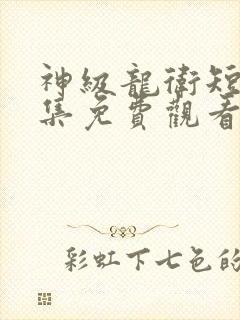 神級龍衛短
集免費觀看
彩虹下七色的